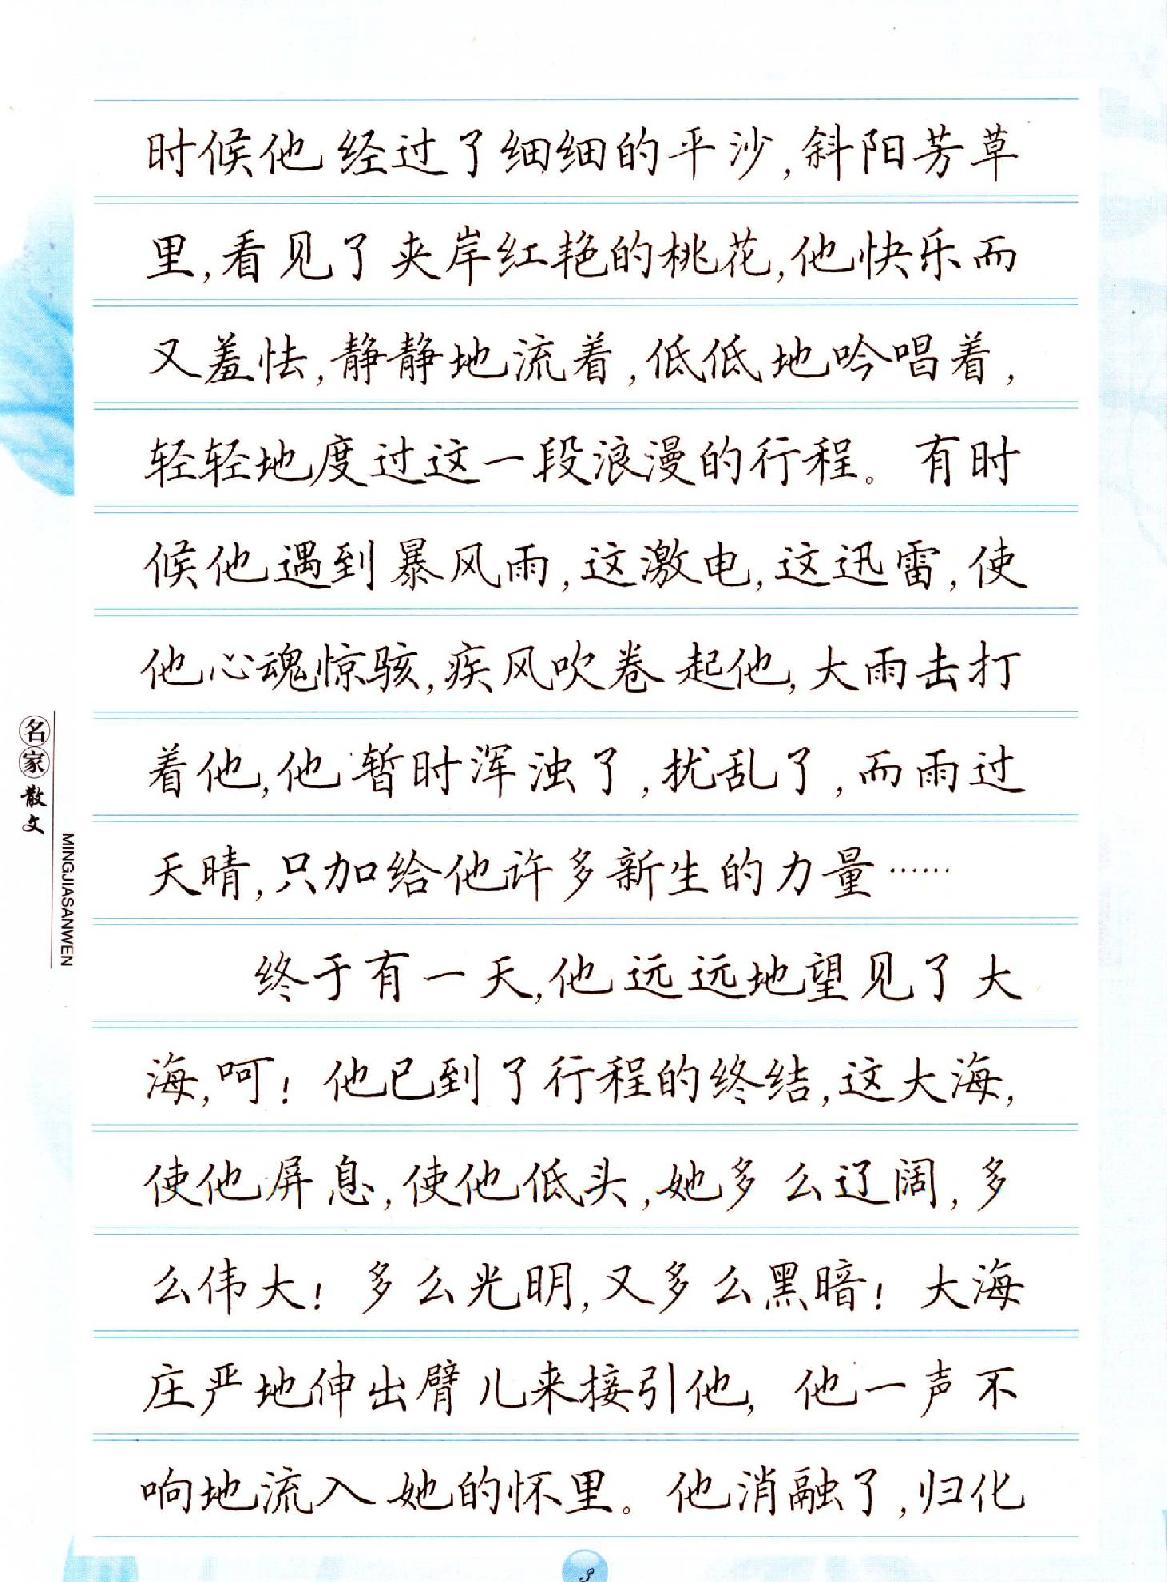 时候他经过了细细的平沙,斜阳芳草
里,看见了夹岸红艳的桃花,他快乐而
又羞怯,静静地流着,低低地吟唱着,
轻轻地度过这一段浪漫的行程。有时
候他遇到暴风雨,这激电,这迅雷,使
他心魂惊骇,疾风吹卷起他,大雨击打
着他,他暂时浑浊了,扰乱了,而雨过
天晴,只加给他许多新生的力量……
终于有一天,他远远地望见了大
海,呵!他已到了行程的终结,这大海,
使他屏息,使他低头,她多么辽阔,多
么伟大!多么光明,又多么黑暗!大海
庄严地伸出臂儿来接引他,他一声不
响地流入她的怀里。他消融了,归化
名家散文
MINGJIASANWEN
3